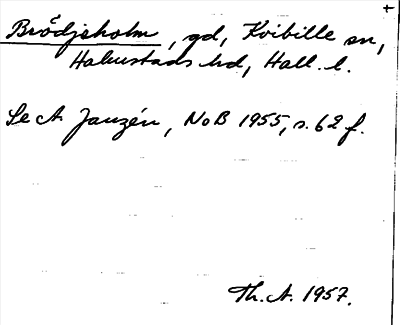 Brödjsholm, gd, Kvibille sn,
Halmstads hd, Hall. l.
Se A Janzén, NoB 1955, s. 62 f.
Th. A. 1957.